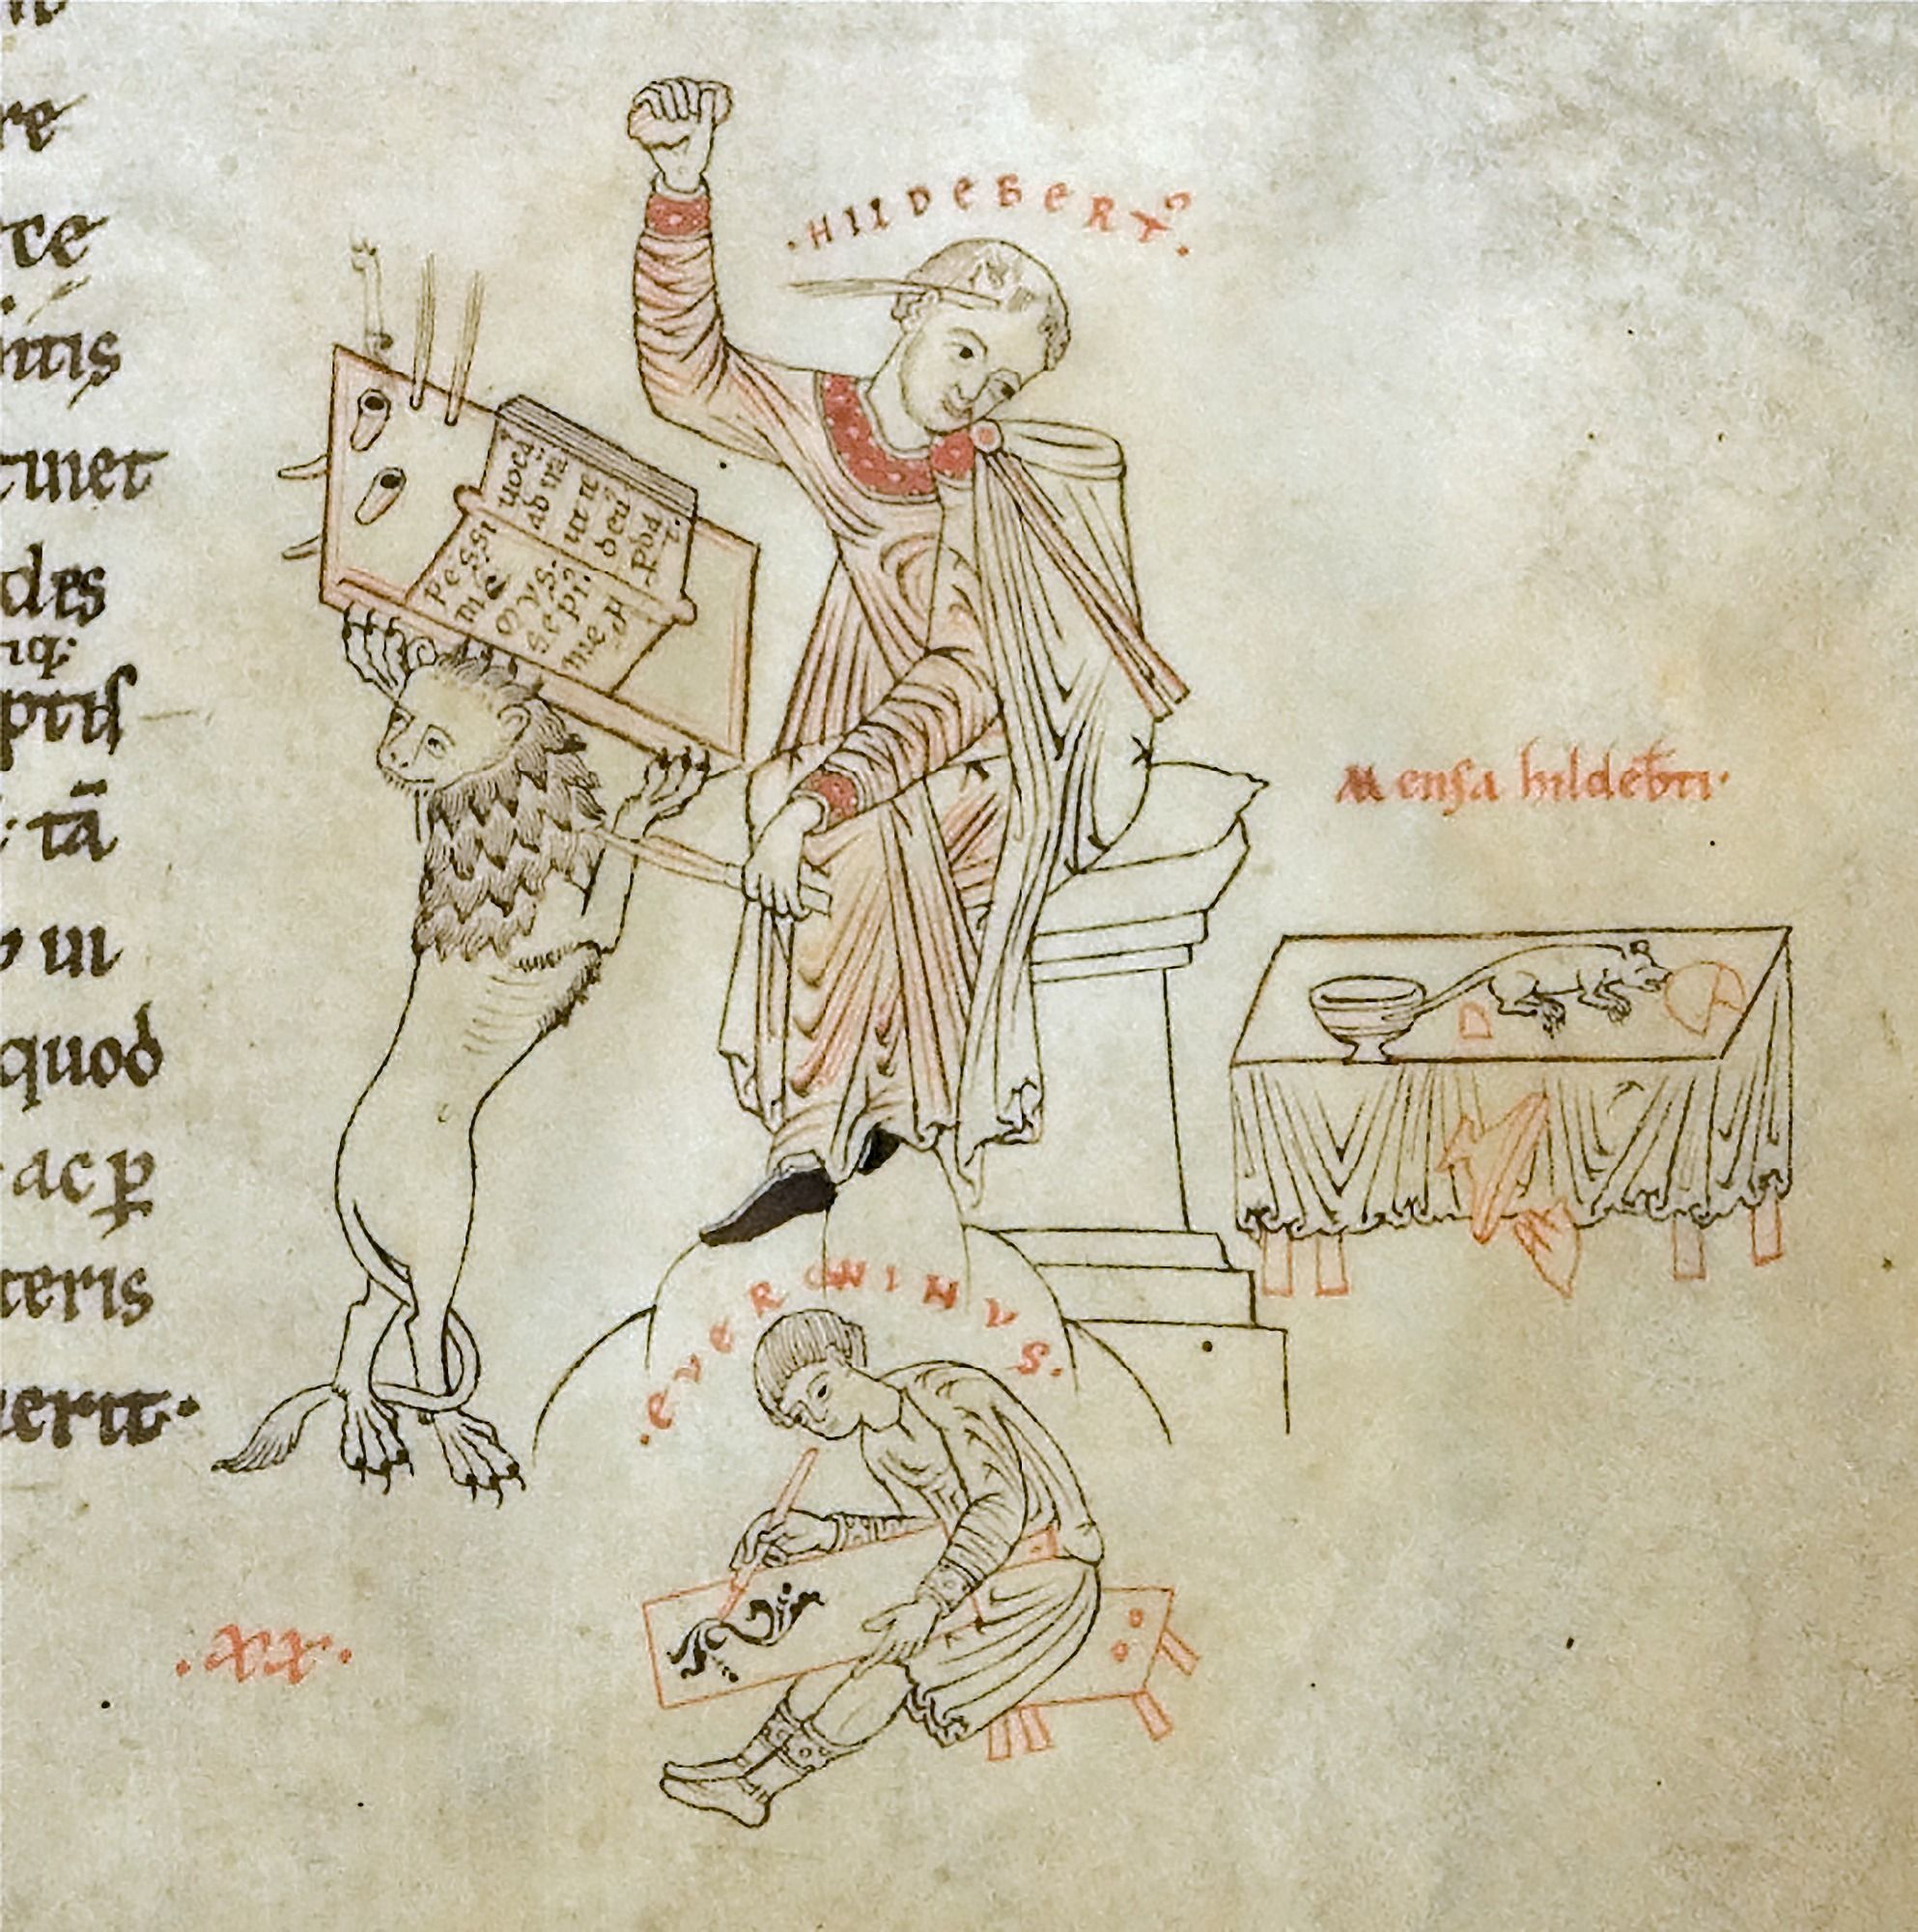 re
ce
itis
tuiet
des
iq:
ptis
tā
ui
quod
ac ꝑ
teris
uerit·
·HILDEBERTꝰ·
Pessi
me
mvs·
sepiꝰ
me ꝓ
uocas
ad irā
ut te
deuꝰ
ꝑdat
Mensa hildeb̄ti·
·EVERWINVS·
·xx·